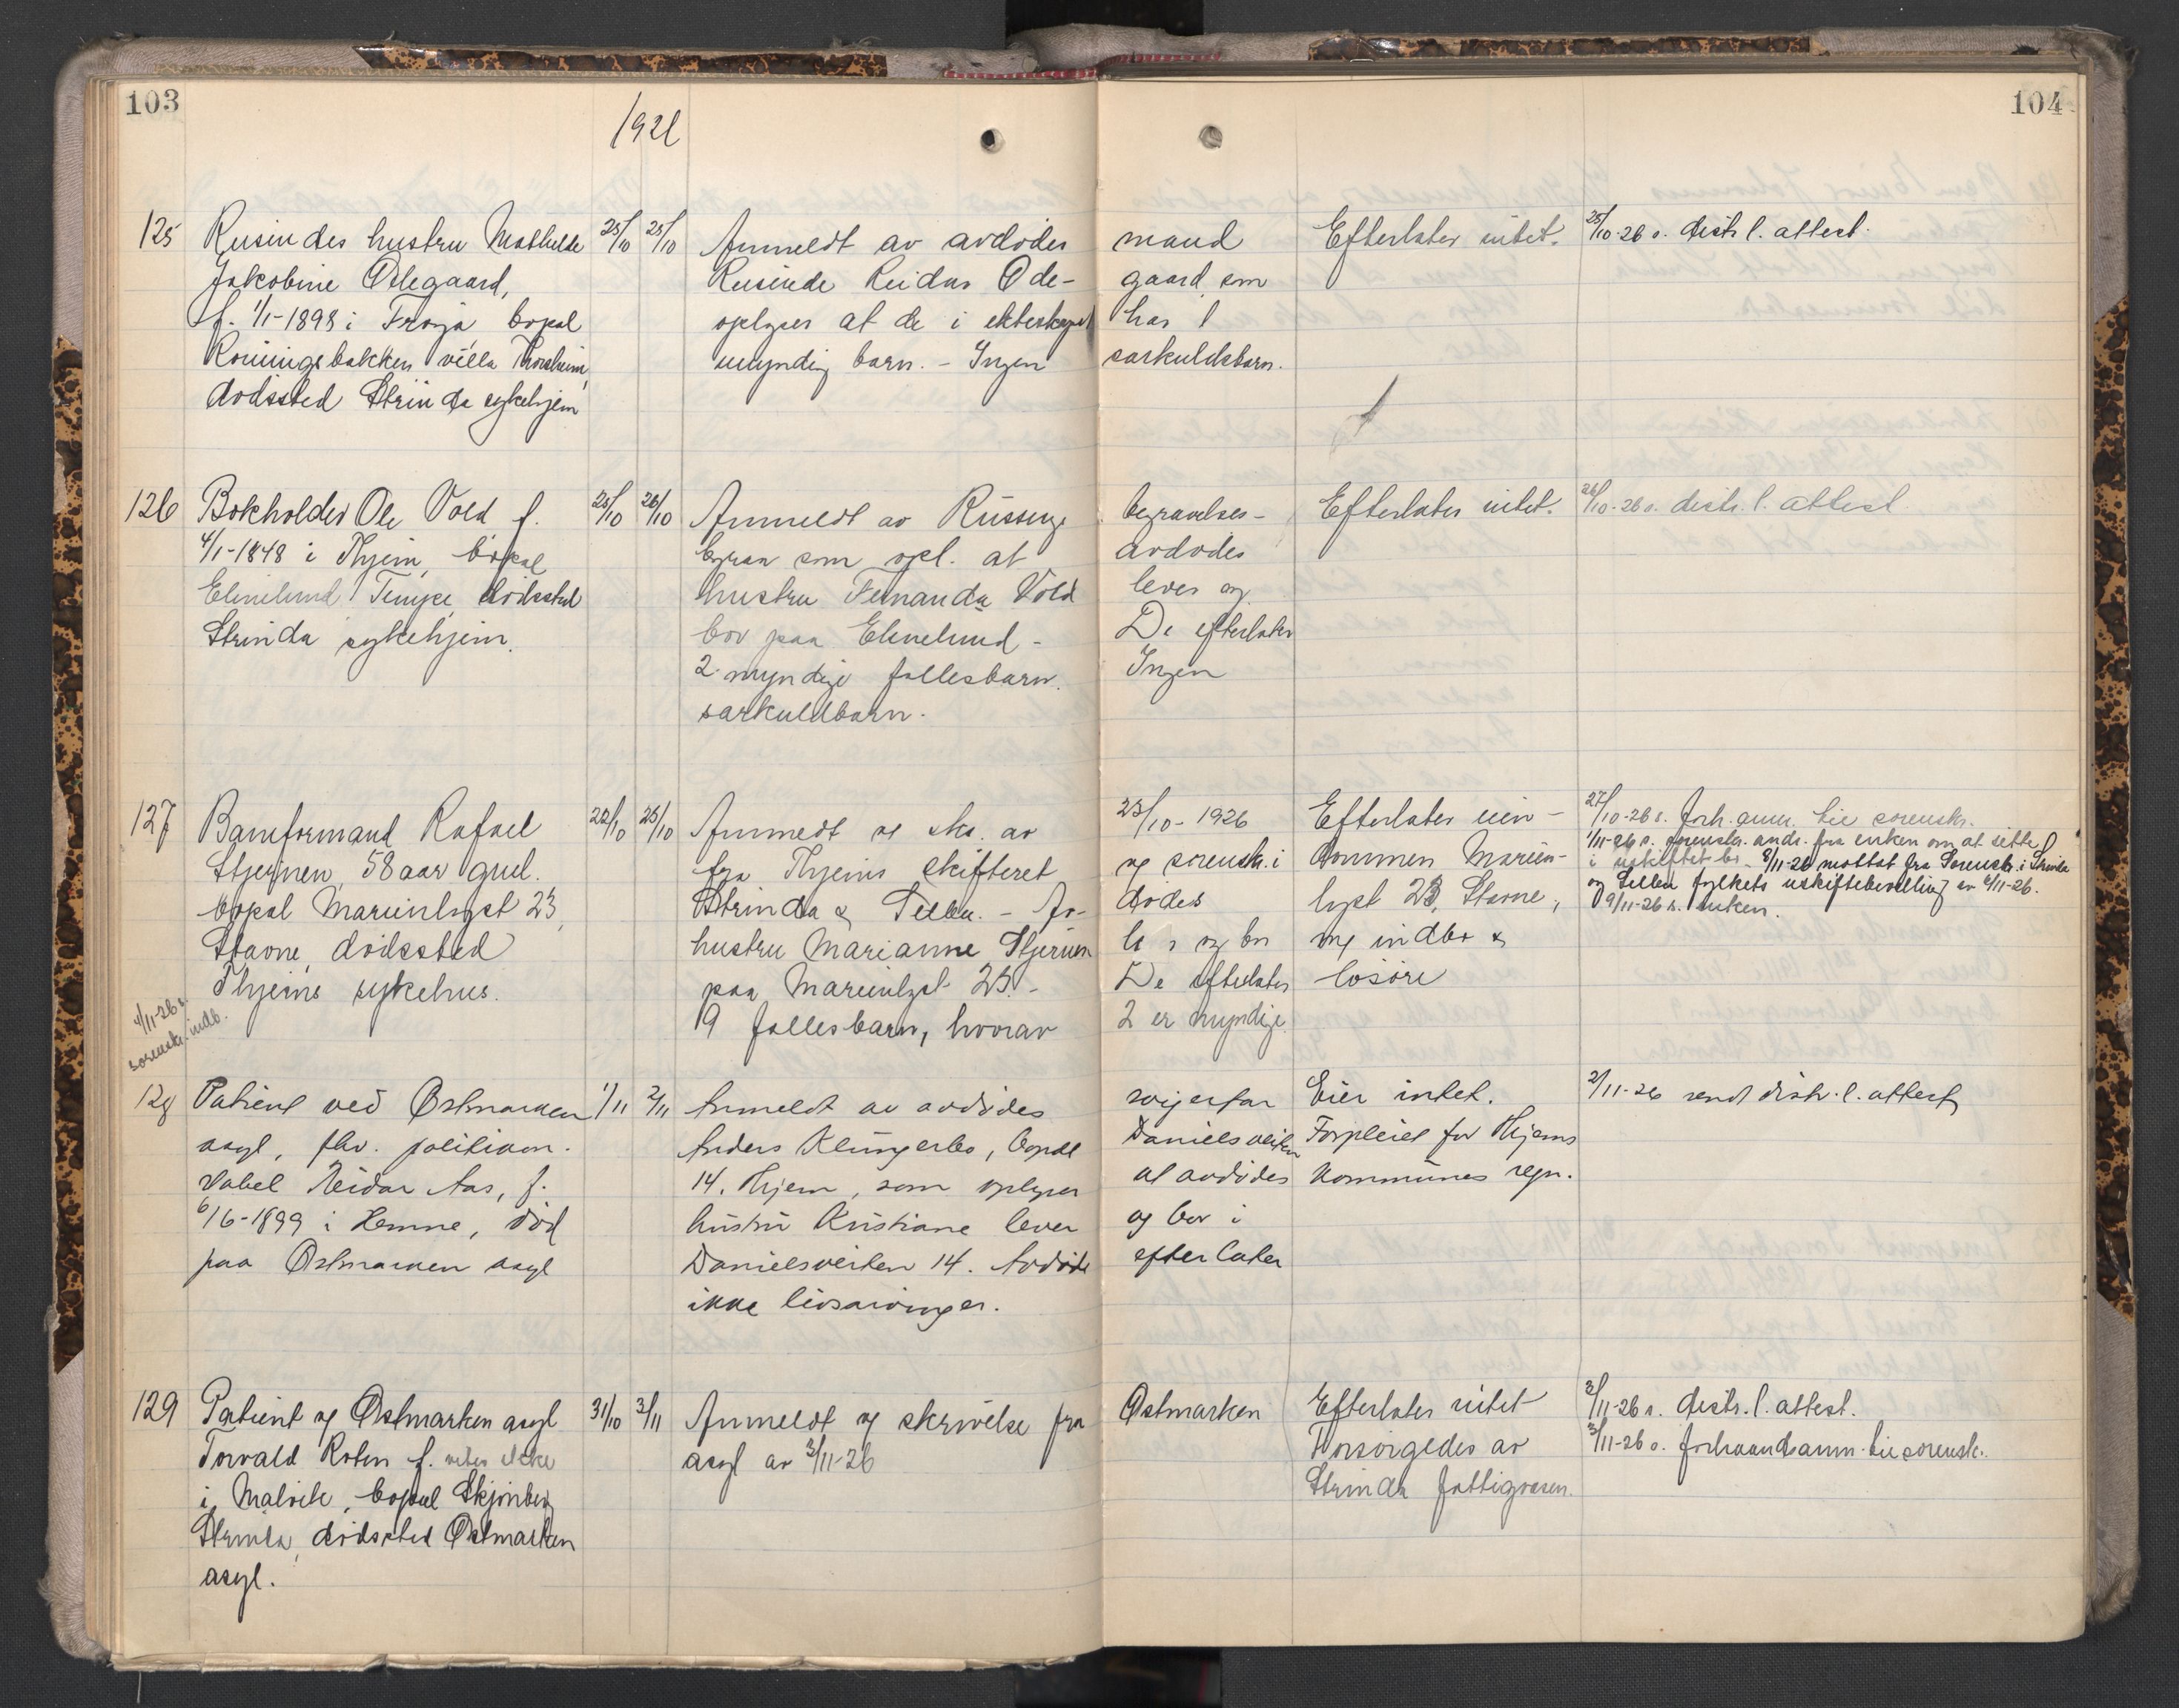 103
1926
104
125 Reisendes hustru Mathilde 25/10 25/10 Anmeldt av avdødes mand Efterlater intet. 25/10-26 s. distr. l. attest.
Jakobine Ødegaard, Reisende Reidar Øde- gaard, som
f. 1/1-1898 i Frøya bopal oplyser at de i ekteskapet har 1
Ronningsbakken villa Thorsheim, umyndig barn. - Ingen særkuldsbarn.
dødssted Strinda sykehjem
126 Bokholder Ole Vold f. 25/10 26/10 Anmeldt av begravelses- Efterlater intet. 26/10-26 s. distr. l. attest
4/1-1848 i Thjem, bopal byraa som opl. at avdødes
Elinelund Tempe, dødssted hustru Fernanda Vold lever og
Strinda sykehjem. bor paa Elinelund - De efterlater
2 myndige fællesbarn. Ingen
særkuldbarn.
127 Baneformand Rafael 22/10 25/10 Anmeldt og skr. av 23/10-1926 Efterlater eien- 27/10-26 s. forh. anm. til sorenskr.
Stjernen, 58 aar gml. fra Thjems skifteret og sorenskr. i dommen Marien- 1/11-26 s. sorenskr. andr. fra enken om at sitte
bopal Marienlyst 23, Strinda & Selbu. - Av- dødes lyst 23, Stavne, i uskiftet bo. 8/11-26 mottat fra Sorenskr. i Strinda
Stavne, dødssted hustru Marianne Stjernen og bor og indbo & og Selbu fylkets uskiftebevilling av 6/11-26.
Thjems sykehus. paa Marienlyst 23. - De efterlater løsøre 9/11-26 s. enken.
9 fællesbarn, hvorav 2 er myndige
4/11-26 s.
sorenskr. indb.
128 Patient ved Østmarken 1/11 2/11 Anmeldt av avdødes svigerfar Eier intet. 2/11-26 sendt distr. l. attest
asyl, fhv. politikon- Anders Klungerbo, bopal Danielsveiten Forpleiet for Thjems
stabel Reidar Aas, f. 14, Thjem, som oplyser at avdødes kommunes regn.
6/6-1899 i Hemne, død hustru Kristiane lever og bor i
paa Østmarken asyl Danielsveiten 14. Avdøde efterlater
ikke livsarvinger.
129 Patient og Østmarken asyl 31/10 3/11 Anmeldt og skrivelse fra Østmarken Efterlater intet 3/11-26 s. distr. l. attest.
Torvald Roten f. vites ikke asyl av 3/11-26 Forsørgedes av 3/11-26 s. forhaandsanm. til sorenskr.
i Malvik, bopal Skjønberg Strinda fattigvæsen.
Strinda, dødssted Østmarken
asyl.